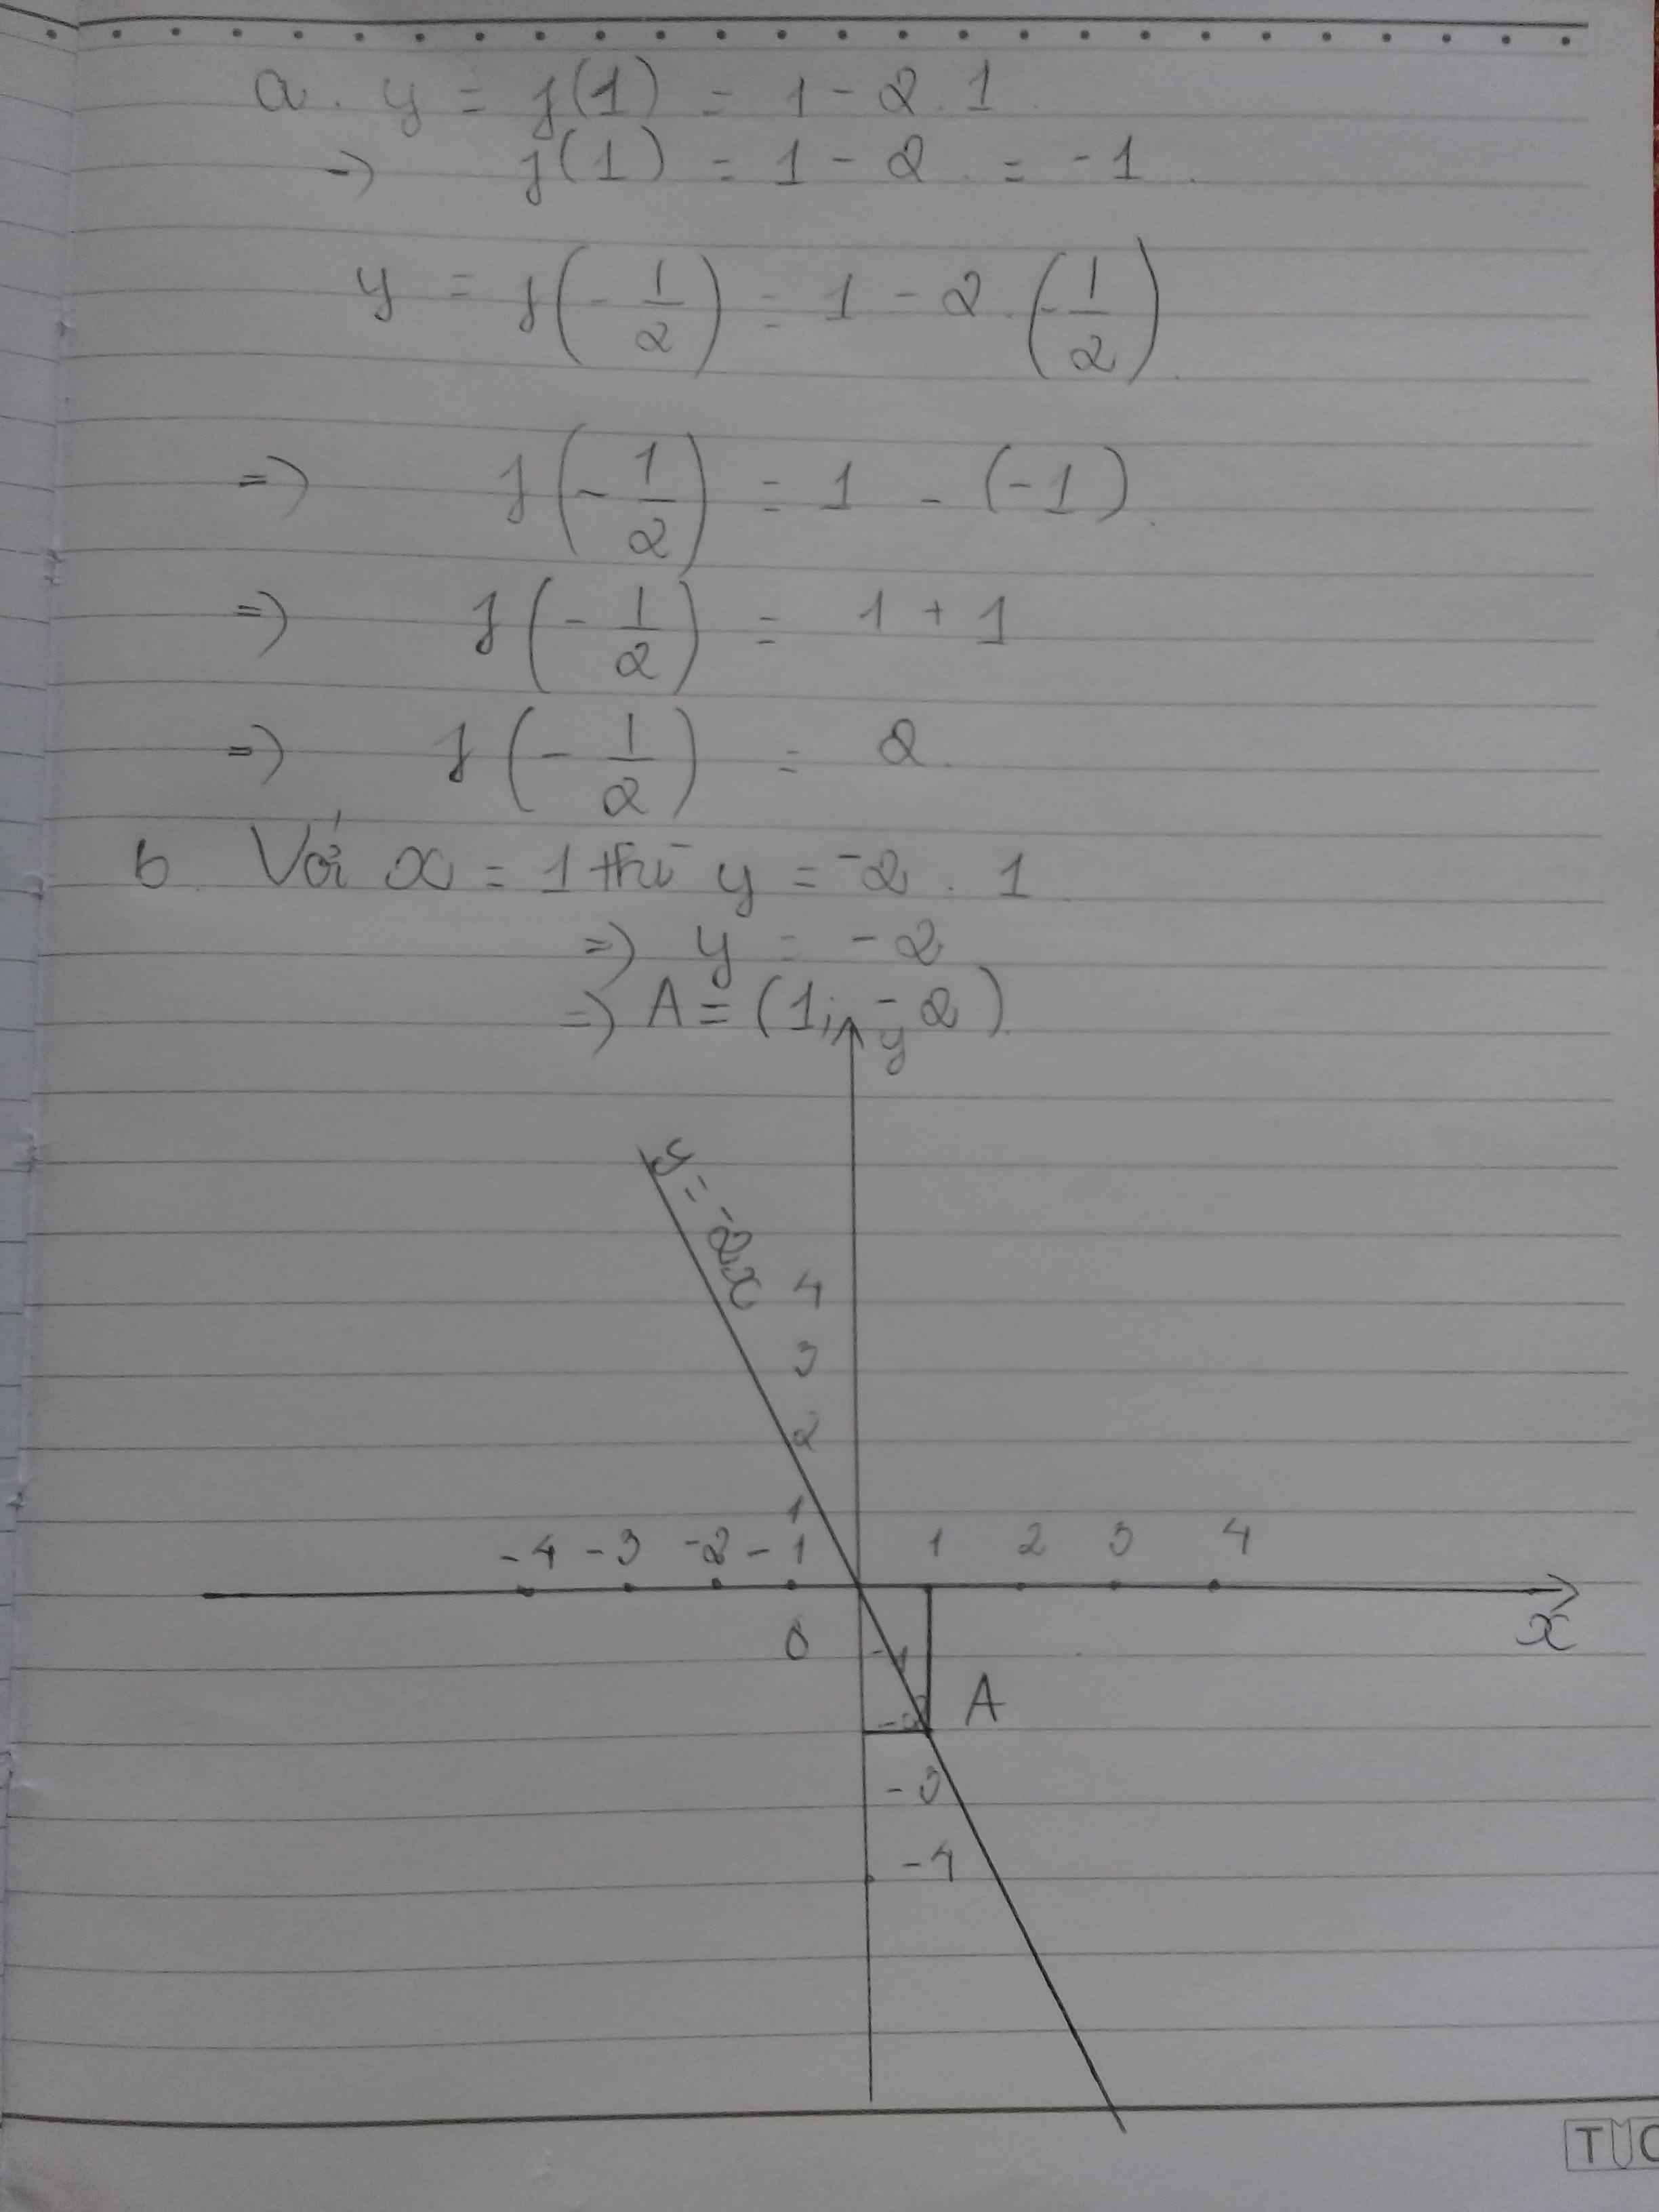 a. y = f(1) = 1 - 2.1
→ f(1) = 1 - 2 = -1.
y = f(-1/2) = 1 - 2.(-1/2).
=> f(-1/2) = 1 - (-1).
=> f(-1/2) = 1 + 1
=> f(-1/2) = 2.
b. Với x = 1 thì y = -2 . 1
=> y = -2
=> A = (1; -2)
y
y = -2x
4
3
2
1
-4 -3 -2 -1 1 2 3 4
0
x
-1
-2
A
-3
-4